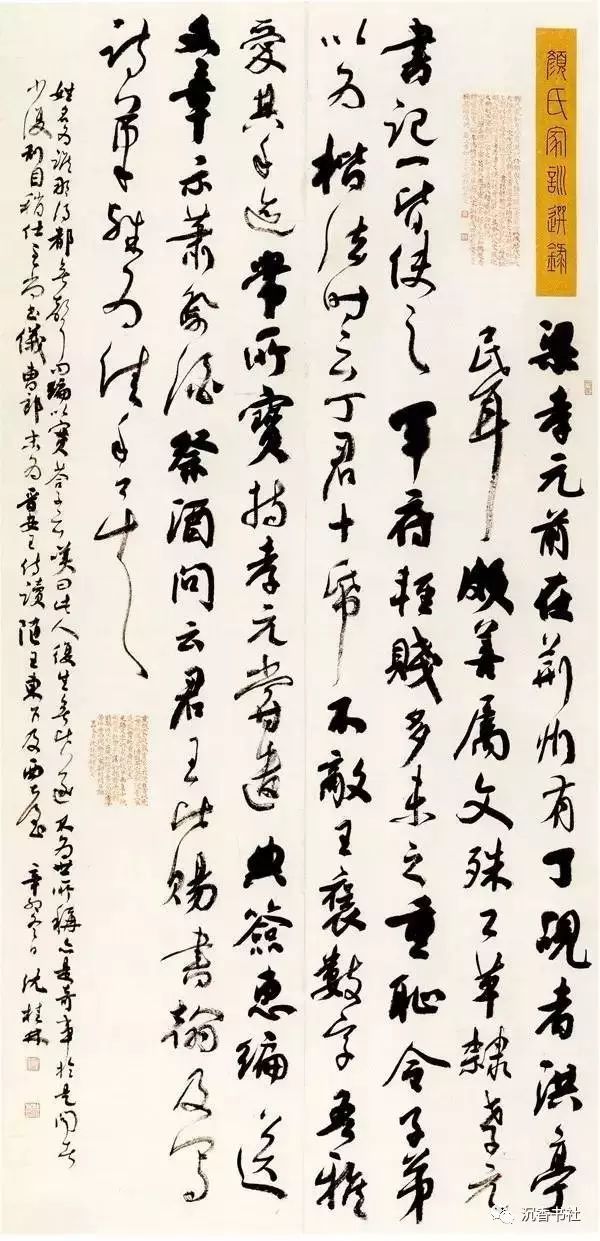 顏氏家訓選錄
梁孝元前在荊州有丁硯者洪亭
民耳頗善属文殊工草隸孝元
書記一皆使之軍府輕賤多未之重恥令子弟
以为楷法時云丁君十紙不敵王褒數字吾雅
愛其手迹常所寶持孝元嘗遣典簽惠編送
文章示蕭祭酒祭酒問云君王比賜書翰及寫
詩筆殊为佳手
姓名为誰那得都無聲問編以實答子云嘆曰此人後生無比遂不为世所稱亦是奇事於是聞者
少復刮目稍仕至尚書儀曹郎末为晉安王侍讀隨王東下及西臺 辛卯冬日 沈桂林
沉香书社